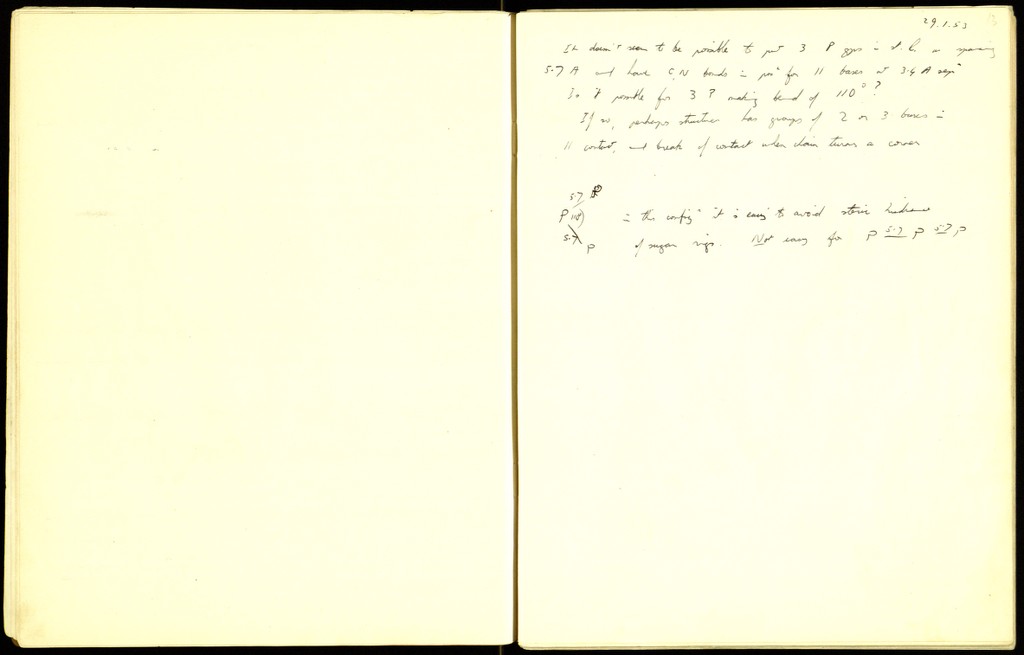 29.1.53
It doesn't seem to be possible to put 3 P gps in st. line spacing
5.7 A and have C.N bonds in posn for 11 bases at 3.4 A sepn
Is it possible for 3 P making bend of 110°?
If so, perhaps structure has groups of 2 or 3 bases in
11 contact, and break of contact when chain turns a corner
5.7 P
P 110°) in this confign it is easy to avoid steric hindrance
5.7 P of sugar rings. Not easy for P 5.7 P 5.7 P